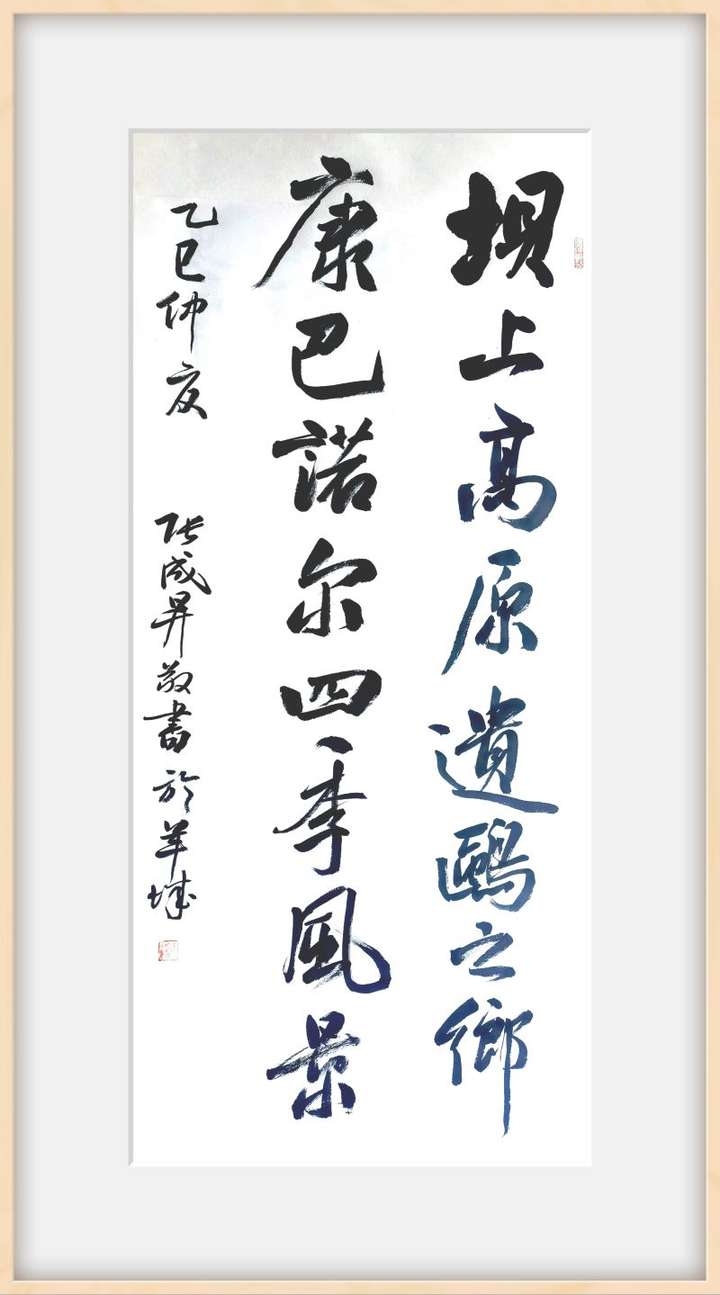 坝上高原遺鷗之鄉
康巴諾尔四季風景
乙巳仲夏 张成昇敬書於羊城